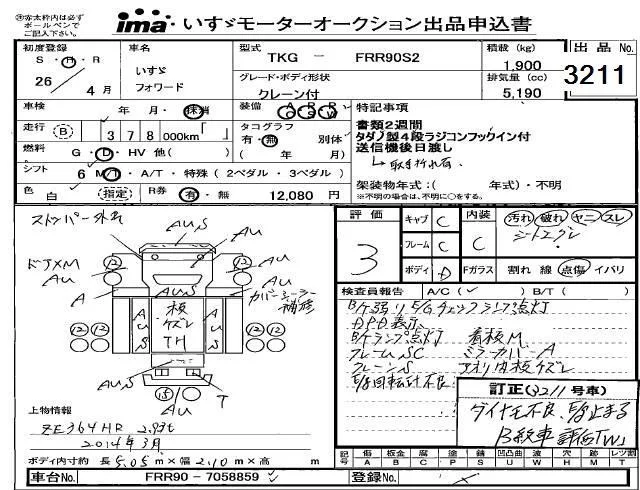 ※赤太枠内は必ず
ボールペンで
ご記入下さい。
ima いすゞモーターオークション出品申込書
初度登録 S・H・R 26 4月
車名 いすゞ フォワード
型式 TKG － FRR90S2
グレード・ボディ形状 クレーン付
積載 (kg) 1,900
排気量 (cc) 5,190
出品 No. 3211
車検 年 月・抹消
装備
走行 B 378000km「 」
タコグラフ 有・無 別体
( 年 月)
燃料 G・D・HV 他( )
シフト 6 M/T・A/T・特殊 ( 2ペダル・3ペダル )
色 白 (指定) R券 有・無 12,080 円
特記事項
書類2週間
タダノ製4段ラジコンフックイン付
送信機後日渡し
架装物年式:( 年式)・不明
※不明の場合は、不明に○をする。
ストッパー外れ
AUS
AU
ドアXM
AU
A
カバーシーラー補修
AUS
板 ズレ TH
AUS
AUS
AUS
AU
T
評価 3
キャブ C
フレーム C
ボディ D
内装 C
汚れ 破れ ヤニ スレ
シートコゲ
Fガラス 割れ 線 点傷 イバリ
検査員報告 A/C(✓) B/T( )
B/ケ弱り E/Gチェックランプ点灯
DPD表示
B/ケランプ点灯 看板M
フレームSC ミラーカバーA
クレーンS アオリ内板ズレ
E/G回転計不良
訂正(3211号車)
ダイナモ不良、E/G止まる
B級車 評価「W」
上物情報
ZE364HR 2.93t
2014年3月
ボディ内寸約 長 5.05 m×幅 2.10 m×高 m
記号 傷A 板金B 腐C 凹D 塗P 錆S 凹凸曲U 波W 穴H 欠M 折X レツ割T
車台No. FRR90 - 7058859
登録No.